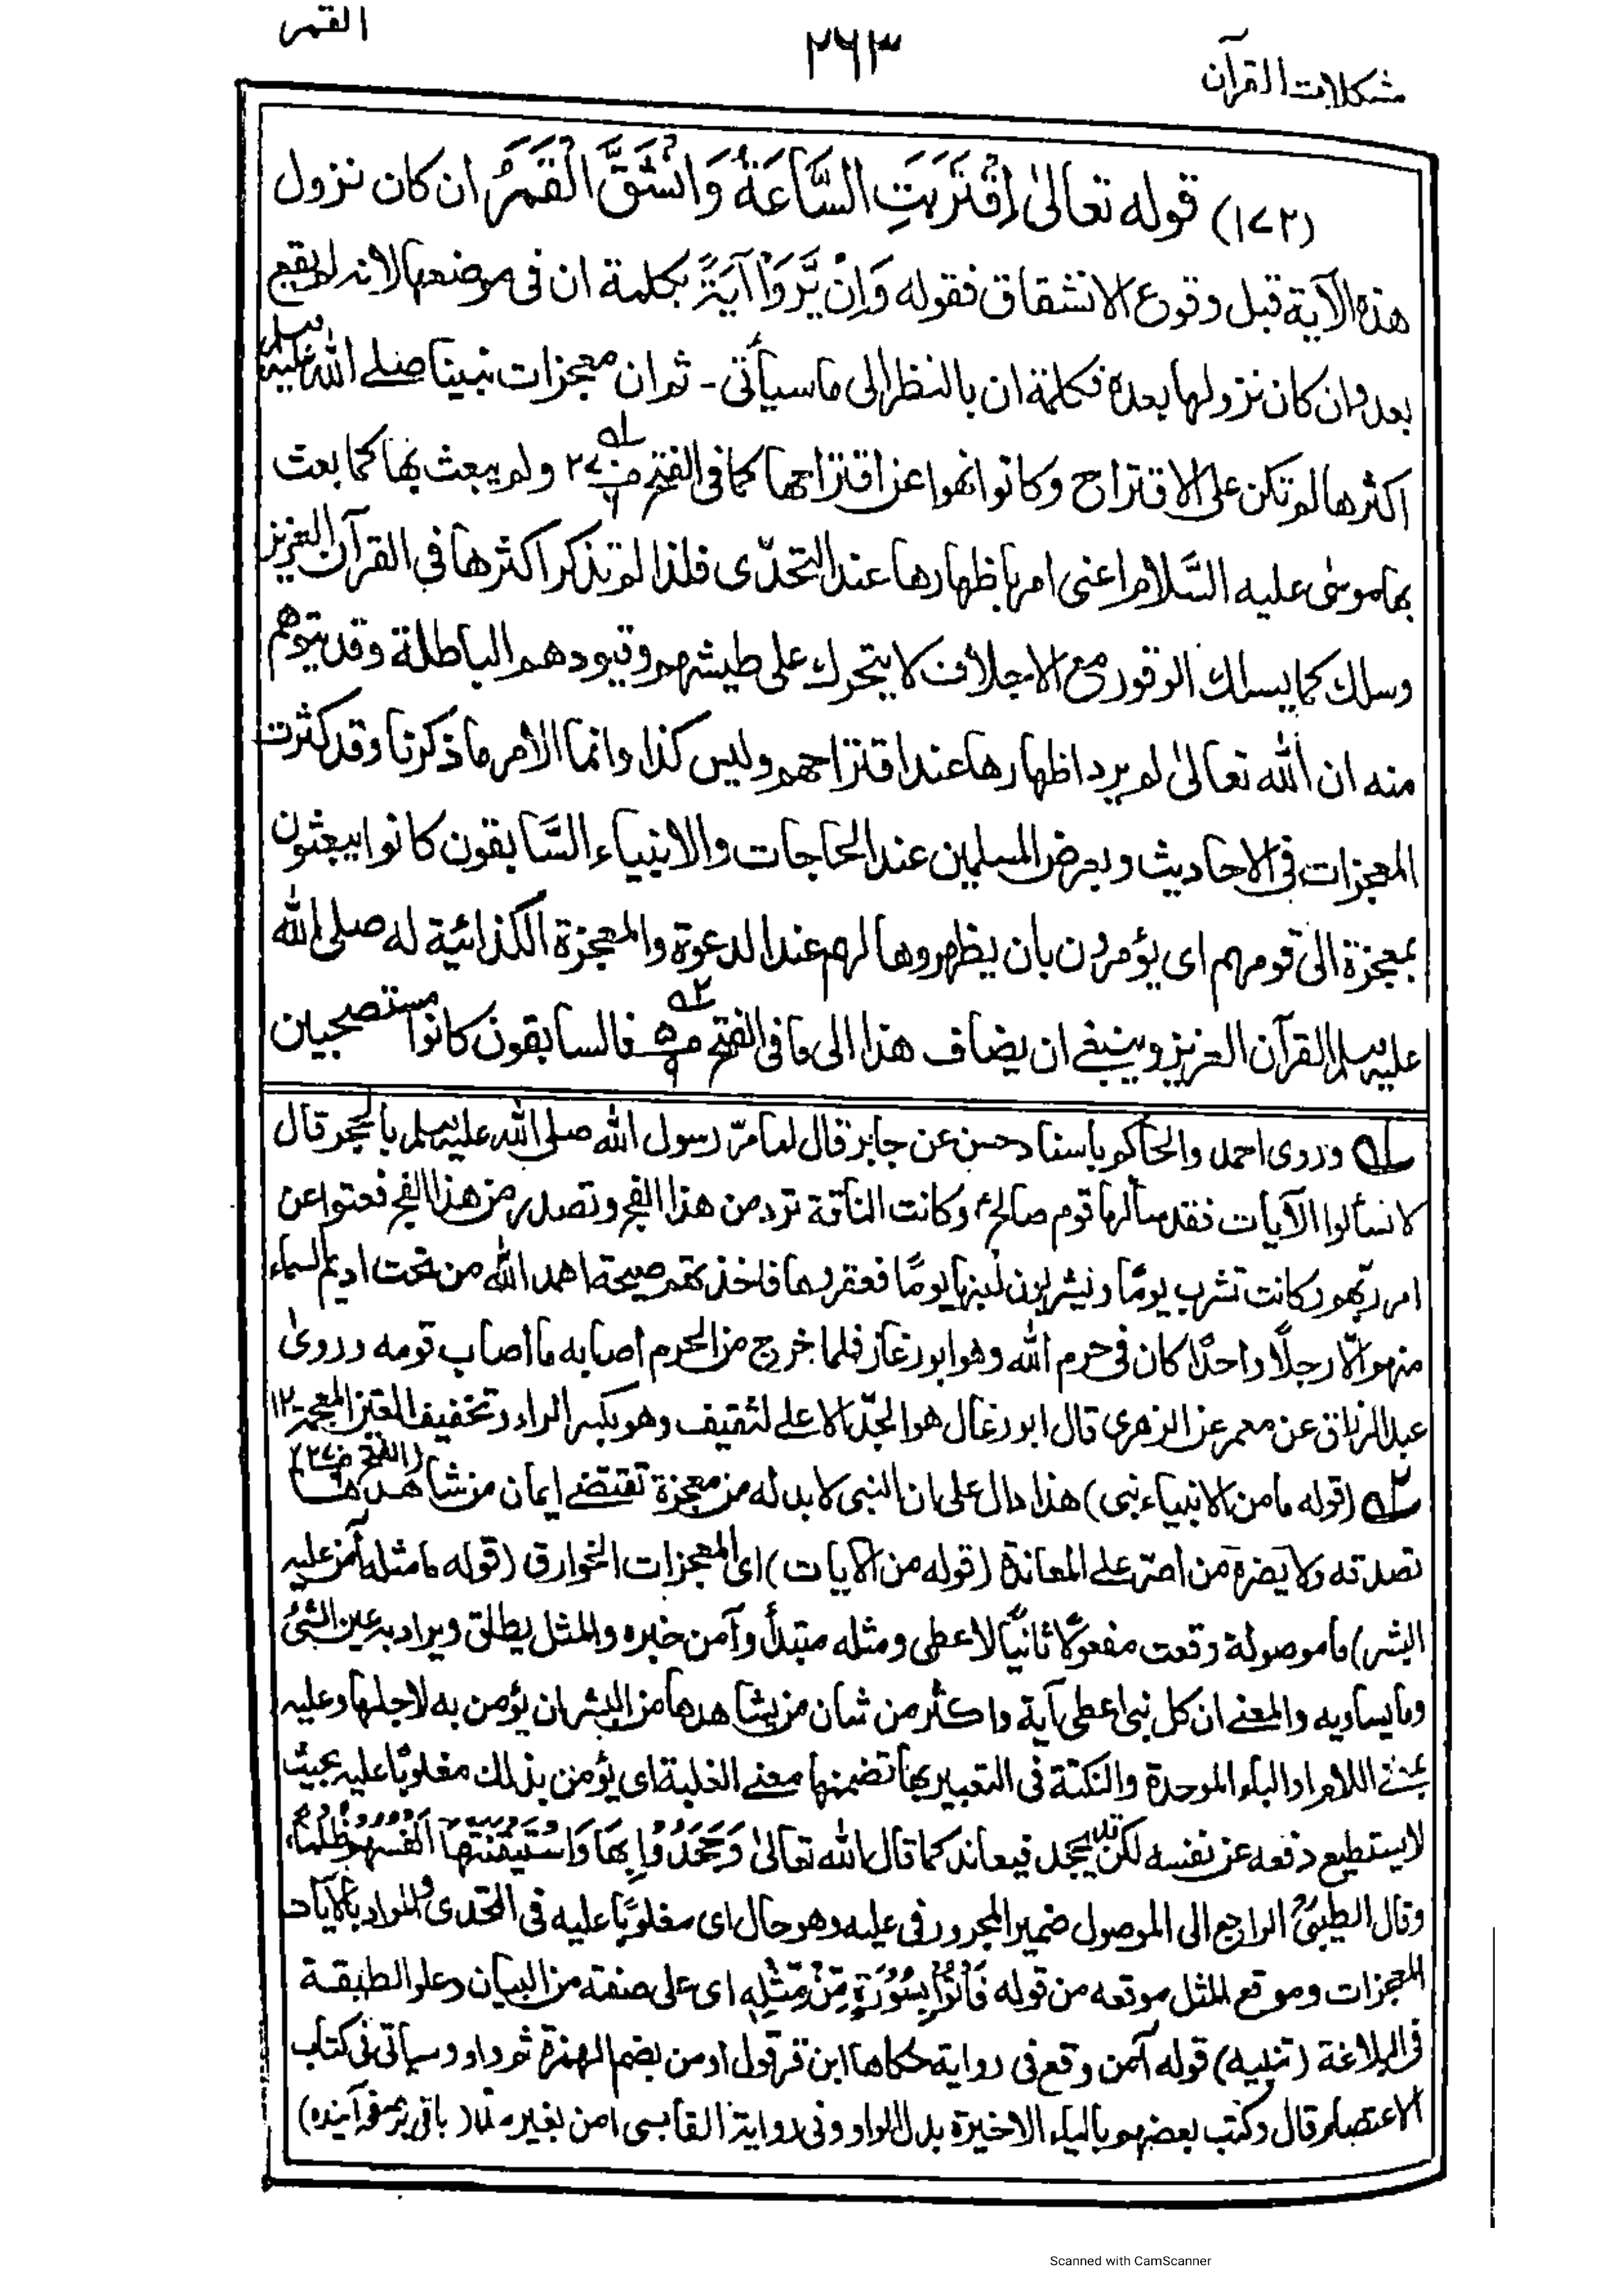 القمر
۲۶۳
مشكلات القرآن
(۱۷۲) قوله تعالىٰ اِقْتَرَبَتِ السَّاعَةُ وَانْشَقَّ الْقَمَرُ ان كان نزول
هذه الآية قبل وقوع الانشقاق فقوله وَاِنْ يَّرَوْا آيَةً بكلمة ان فى موضعها لانه لم يقع
بعد وان كان نزولها بعده فكلمة ان بالنظر الى ما سيأتى - ثم ان معجزات نبينا صلے الله عليه وسلم
اكثرها لم تكن على الاقتراح وكانوا نهوا عن اقتراحها كما فى الفتح ۲۷۰ ؎۱ ولم يبعث بها كما بعث
بها موسى عليه السَّلام اعنى امر باظهارها عند التحدّى فلذا لم تذكر اكثرها فى القرآن العزيز
وسلك كما يسلك الوقور مع الاجلاف لا يتحرك على طيشهم وقيودهم الباطلة وقد يتوهم
منه ان الله تعالىٰ لم يرد اظهارها عند اقتراحهم وليس كذا وانما الامر ما ذكرنا وقد كثرت
المعجزات فى الاحاديث وبعرض المسلمين عند الحاجات والانبياء السَّابقون كانوا يبعثون
بمعجزة الى قومهم اى يؤمرون بان يظهروها لهم عند الدعوة والمعجزة الكذائية له صلى الله
عليه وسلم القرآن العزيز وينبغے ان يضاف هذا الى ما فى الفتح ؎۲ فالسابقون كانوا مستصحبين
؎۱ وروى احمد والحاكم باسناد حسن عن جابر قال لما مرّ رسول الله صلى الله عليه وسلم بالحجر قال
لا تسألوا الآيات فقد سألها قوم صالحؑ وكانت الناقة ترد من هذا الفج وتصدر من هذا الفج فعتوا عن
امر ربهم وكانت تشرب يومًا ويشربون لبنها يومًا فعقروها فاخذتهم صيحة اهمد الله من تحت اديم السماء
منهم الّا رجلًا واحدًا كان فى حرم الله وهو ابو رغال فلما خرج من الحرم أصابه ما أصاب قومه وروىٰ
عبد الرزاق عن معمر عن الزهرى قال ابو رغال هو الجدّ الاعلے لثقيف وهو بكسر الراء وتخفيف الغين المعجمة ۱۲
(الفتح ۲۷۰)
؎۲ (قوله ما من الانبياء نبى) هذا دال على ان النبى لا بد له من معجزة تقتضے إيمان من شاهدها
تصدقه ولا يضره من اصرّ على المعاندة (قوله من الآيات) اى المعجزات الخوارق (قوله ما مثله آمن عليه
البشر) ما موصولة وقعت مفعولًا ثانيًا لاعطى ومثله مبتدأ وآمن خبره والمثل يطلق ويراد به عين الشئ
وما يساويه والمعنے ان كل نبى اعطى آية واكثر من شان من يشاهدها من البشر ان يؤمن به لاجلها وعليه
بمعنے اللام او الباء الموحدة والنكتة فى التعبير بها تضمنها معنے الغلبة اى يؤمن بذلك مغلوبًا عليه بحيث
لا يستطيع دفعه عن نفسه لكن قد يجحد فيعاند كما قال الله تعالىٰ وَجَحَدُوْا بِهَا وَاسْتَيْقَنَتْهَا اَنْفُسُهُمْ ظُلْمًا،
وقال الطيبىؒ الراجع الى الموصول ضمير المجرور فى عليه وهو حال اى مغلوبًا عليه فى التحدى والمراد بالآيات
المعجزات وموقع المثل موقعه من قوله فَأْتُوْا بِسُوْرَةٍ مِّنْ مِّثْلِهٖ اى على صفته من البيان وعلو الطبقة
فى البلاغة (تنبيه) قوله آمن وقع فى رواية حكاها ابن قرقول اومن بضم الهمزة ثم واو وسيأتى فى كتاب
الاعتصام قال وكتب بعضهم بالياء الاخيرة بدل الواو وفى رواية القابسى امن بغير مد (باقى بر صفحه آينده)
Scanned with CamScanner